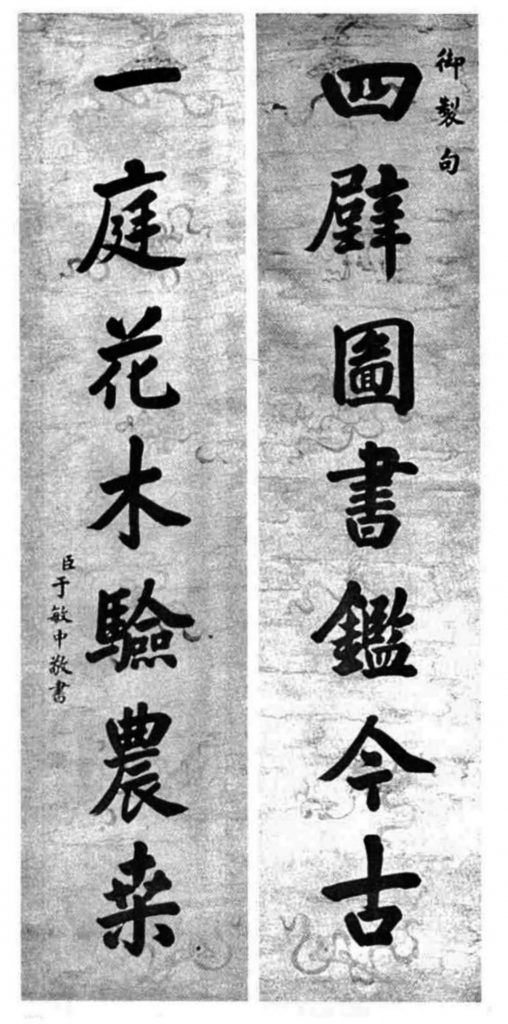 御製句
四壁圖書鑑今古
一庭花木驗農桒
臣于敏中敬書